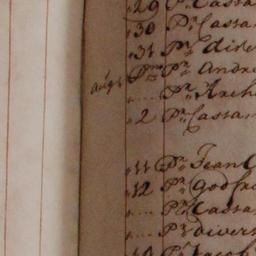 29 Pr Cassa
30 Pr Cassa
31 Pr diver
Augt Pmo Pr Andre
.... Pr Arch
2 Pr Cassa
11 Pr Jean
12 Pr Godfr
.... Pr Cassa
.... Pr divers
19 Pr Jacob